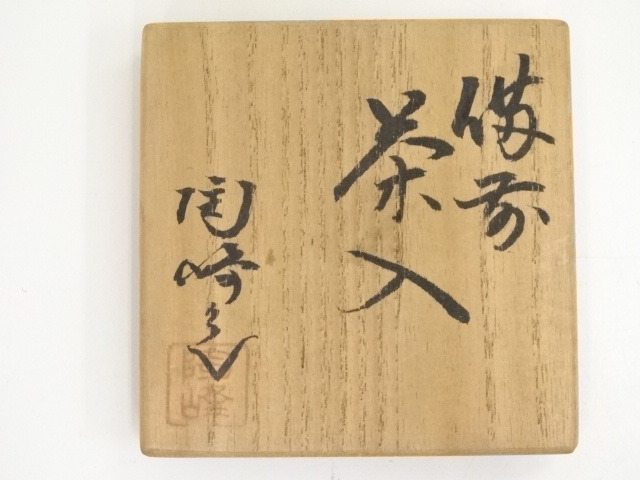 備前
茶入
陶峰